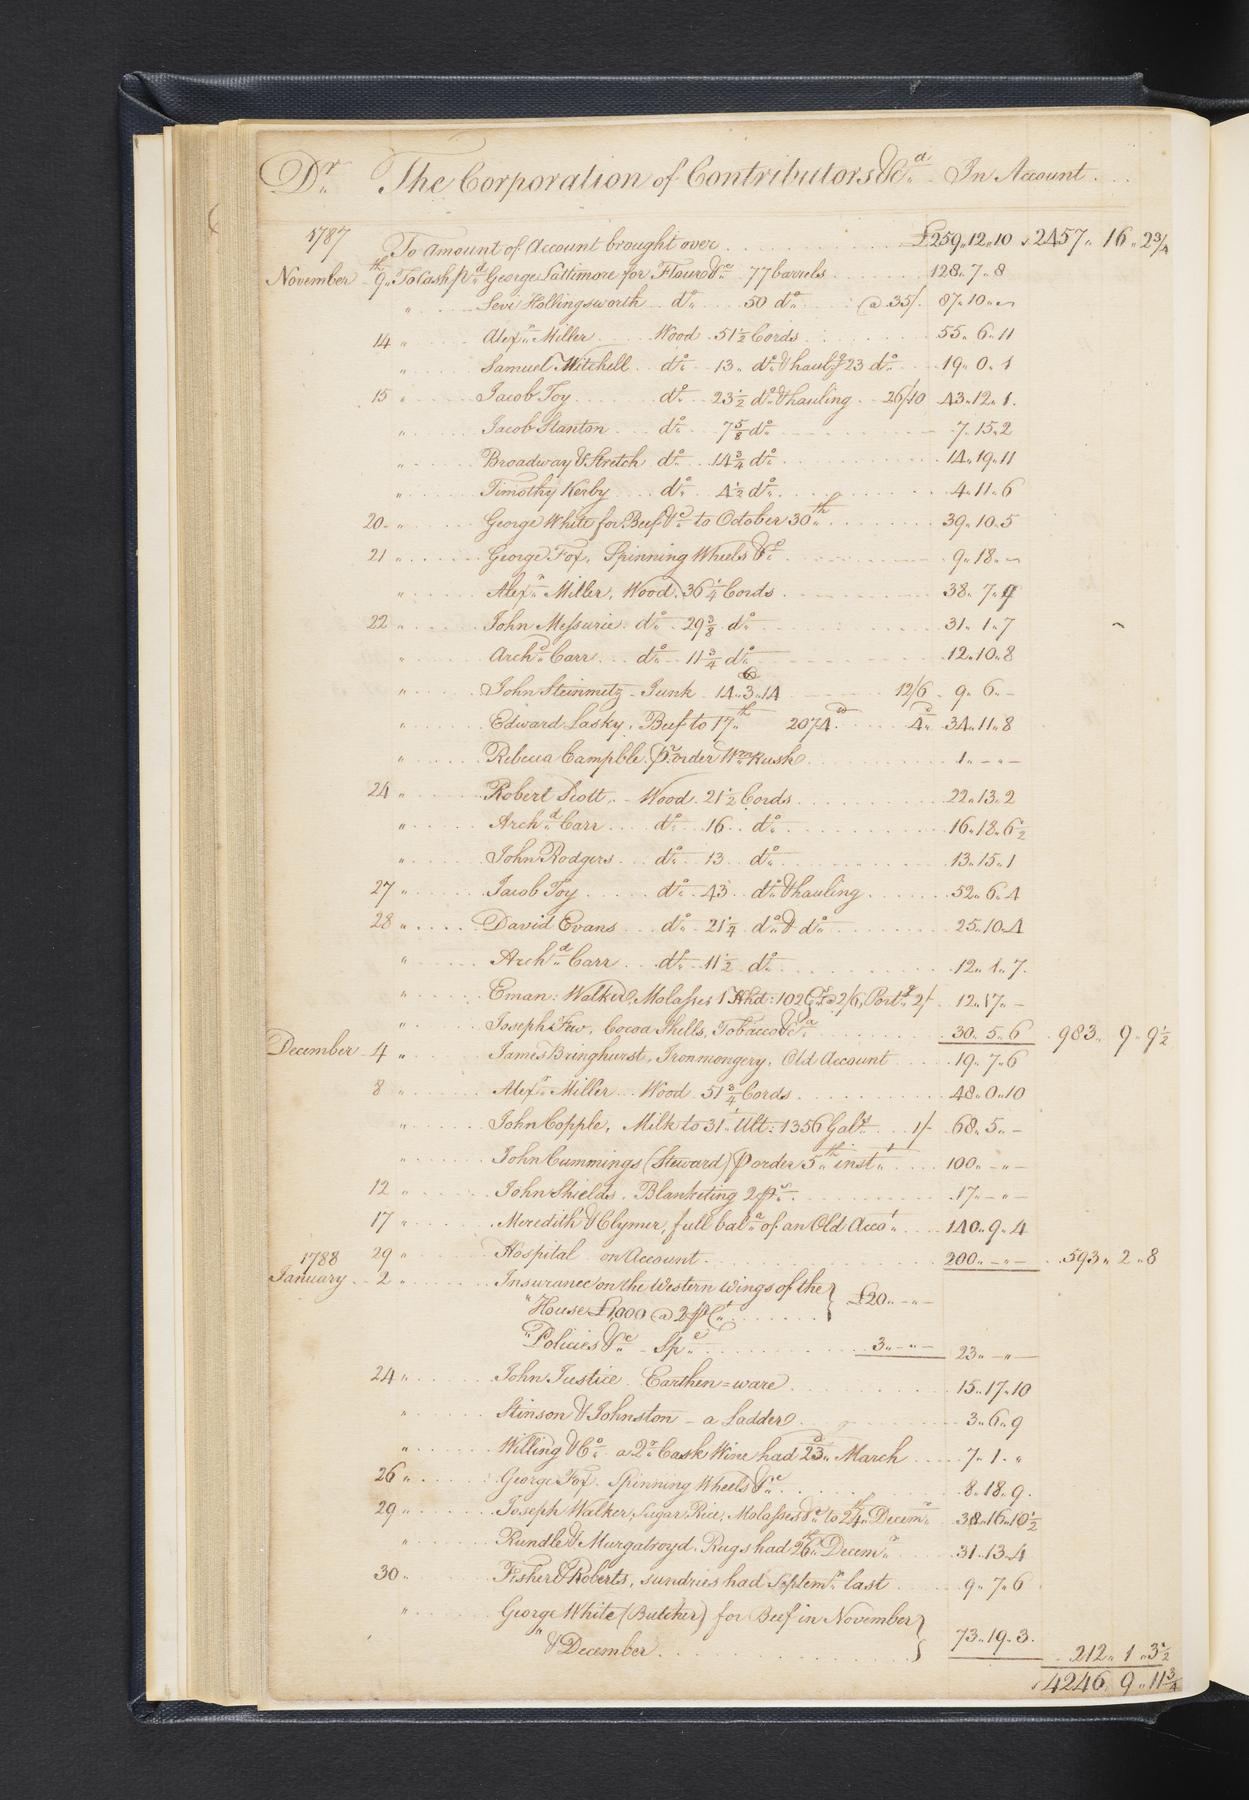 Dr. The Corporation of Contributors &ca. In Account
1787 To Amount of Account brought over £259,,12,,10 2457,,16,,2 3/4
November 9th. To Cash pd. George Lattimore for Flour &c. 77 barrels 128,,7,,8
" Levi Hollingsworth do. 50 do. @ 35/. 87,,10,,—
14 " Alexr. Miller Wood 51 1/2 Cords 55,,6,,11
" Samuel Mitchell do. 13 do. & haulg 23 do. 19,,0,,1
15 " Jacob Toy do. 23 1/2 do. & hauling 26/10 43,,12,,1
" Jacob Stanton do. 7 5/8 do. 7,,15,,2
" Broadway & Stretch do. 14 3/4 do. 14,,19,,11
" Timothy Kerby do. 4 1/2 do. 4,,11,,6
20 " George White for Beef &c. to October 30th. 39,,10,,5
21 " George Fox, Spinning Wheels &c. 9,,18,,—
" Alexr. Miller, Wood, 36 1/4 Cords 38,,7,,9
22 " John Messurie do. 29 3/8 do. 31,,1,,7
" Archd. Carr do. 11 3/4 do. 12,,10,,8
" John Steinmetz - Junk 14,,3,,14 12/6 9,,6,,-
" Edward Lasky, Beef to 17th. 2074 4d. 34,,11,,8
" Rebecca Campble pr. order Wm. Rush 1,,-,,-
24 " Robert Scott, - Wood 21 1/2 Cords 22,,13,,2
" Archd. Carr do. 16 do. 16,,18,,6 1/2
" John Rodgers do. 13 do. 13,,15,,1
27 " Jacob Toy do. 43 do. & hauling 52,,6,,4
28 " David Evans do. 21 1/4 do. & do. 25,,10,,4
" Archd. Carr do. 11 1/2 do. 12,,1,,7
" Eman: Walker, Molasses 1 Hhd: 102 Gs. @ 2/6, Portg. 2/- 12,,17,,-
" Joseph Few, Cocoa Shells, Tobacco &ca. 30,,5,,6 983,,9,,9 1/2
December 4 " James Bringhurst, Ironmongery, Old Account 19,,7,,6
8 " Alexr. Miller Wood 51 3/4 Cords 48,,0,,10
" John Copple, Milk to 31. Ult: 1356 Gals. 1/- 68,,5,,-
" John Cummings (Steward) p order 5th. inst. 100,,-,,-
12 " John Shields, Blanketing 2 ps. 17,,-,,-
17 " Meredith & Clymer, full bala. of an Old Acco't. 140,,9,,4
29 " Hospital on Account 200,,-,,- 593,,2,,8
1788
January 2 " Insurance on the Western Wings of the } £20,,-,,-
" House £1,000 @ 2 p Ct.
" Policies &c. - Spe. 3,,-,,- 23,,-,,-
24 " John Justice Earthen=ware 15,,17,,10
" Stinson & Johnston - a Ladder 3,,6,,9
" Willing & Co. a Qr. Cask Wine had 23d. March 7,,1,,"
26 " George Fox. Spinning Wheels &c. 8,,18,,9
29 " Joseph Walker, Sugar, Rice, Molasses &c. to 24th. Decemr. 38,,16,,10 1/2
" Rundle & Murgatroyd. Rugs had 26th. Decemr. 31,,13,,4
30 " Fisher & Roberts, sundries had Septemr. last 9,,7,,6
" George White (Butcher) for Beef in November }
" & December 73,,19,,3 212,,1,,3 1/2
4246,,9,,11 3/4